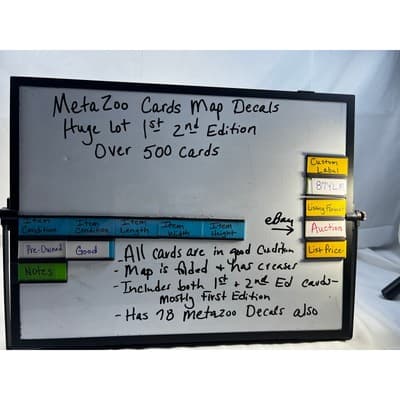 MetaZoo Cards Map Decals
Huge Lot 1st 2nd Edition
Over 500 Cards
Custom Label
B74L
Listing Format
eBay →
Auction
List Price
Item Condition
Item Condition
Item Length
Item Width
Item Height
Pre-Owned
Good
Notes
- All cards are in good Condition
- Map is faded + has creases
- Includes both 1st + 2nd Ed cards-
mostly First Edition
- Has 78 Metazoo Decals also